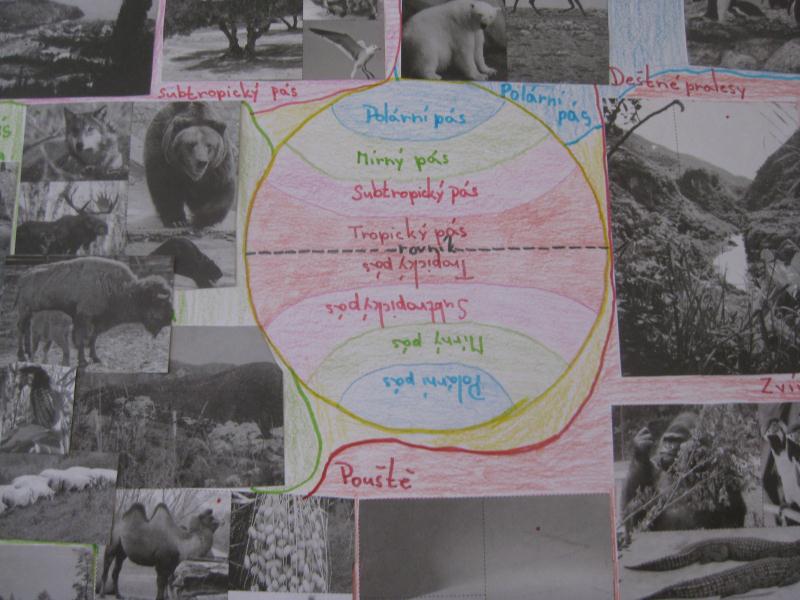 Subtropický pás
Polární
pás
Deštné pralesy
Polární pás
Mírný pás
Subtropický pás
Tropický pás
rovník
Tropický pás
Subtropický pás
Mírný pás
Polární pás
Pouště